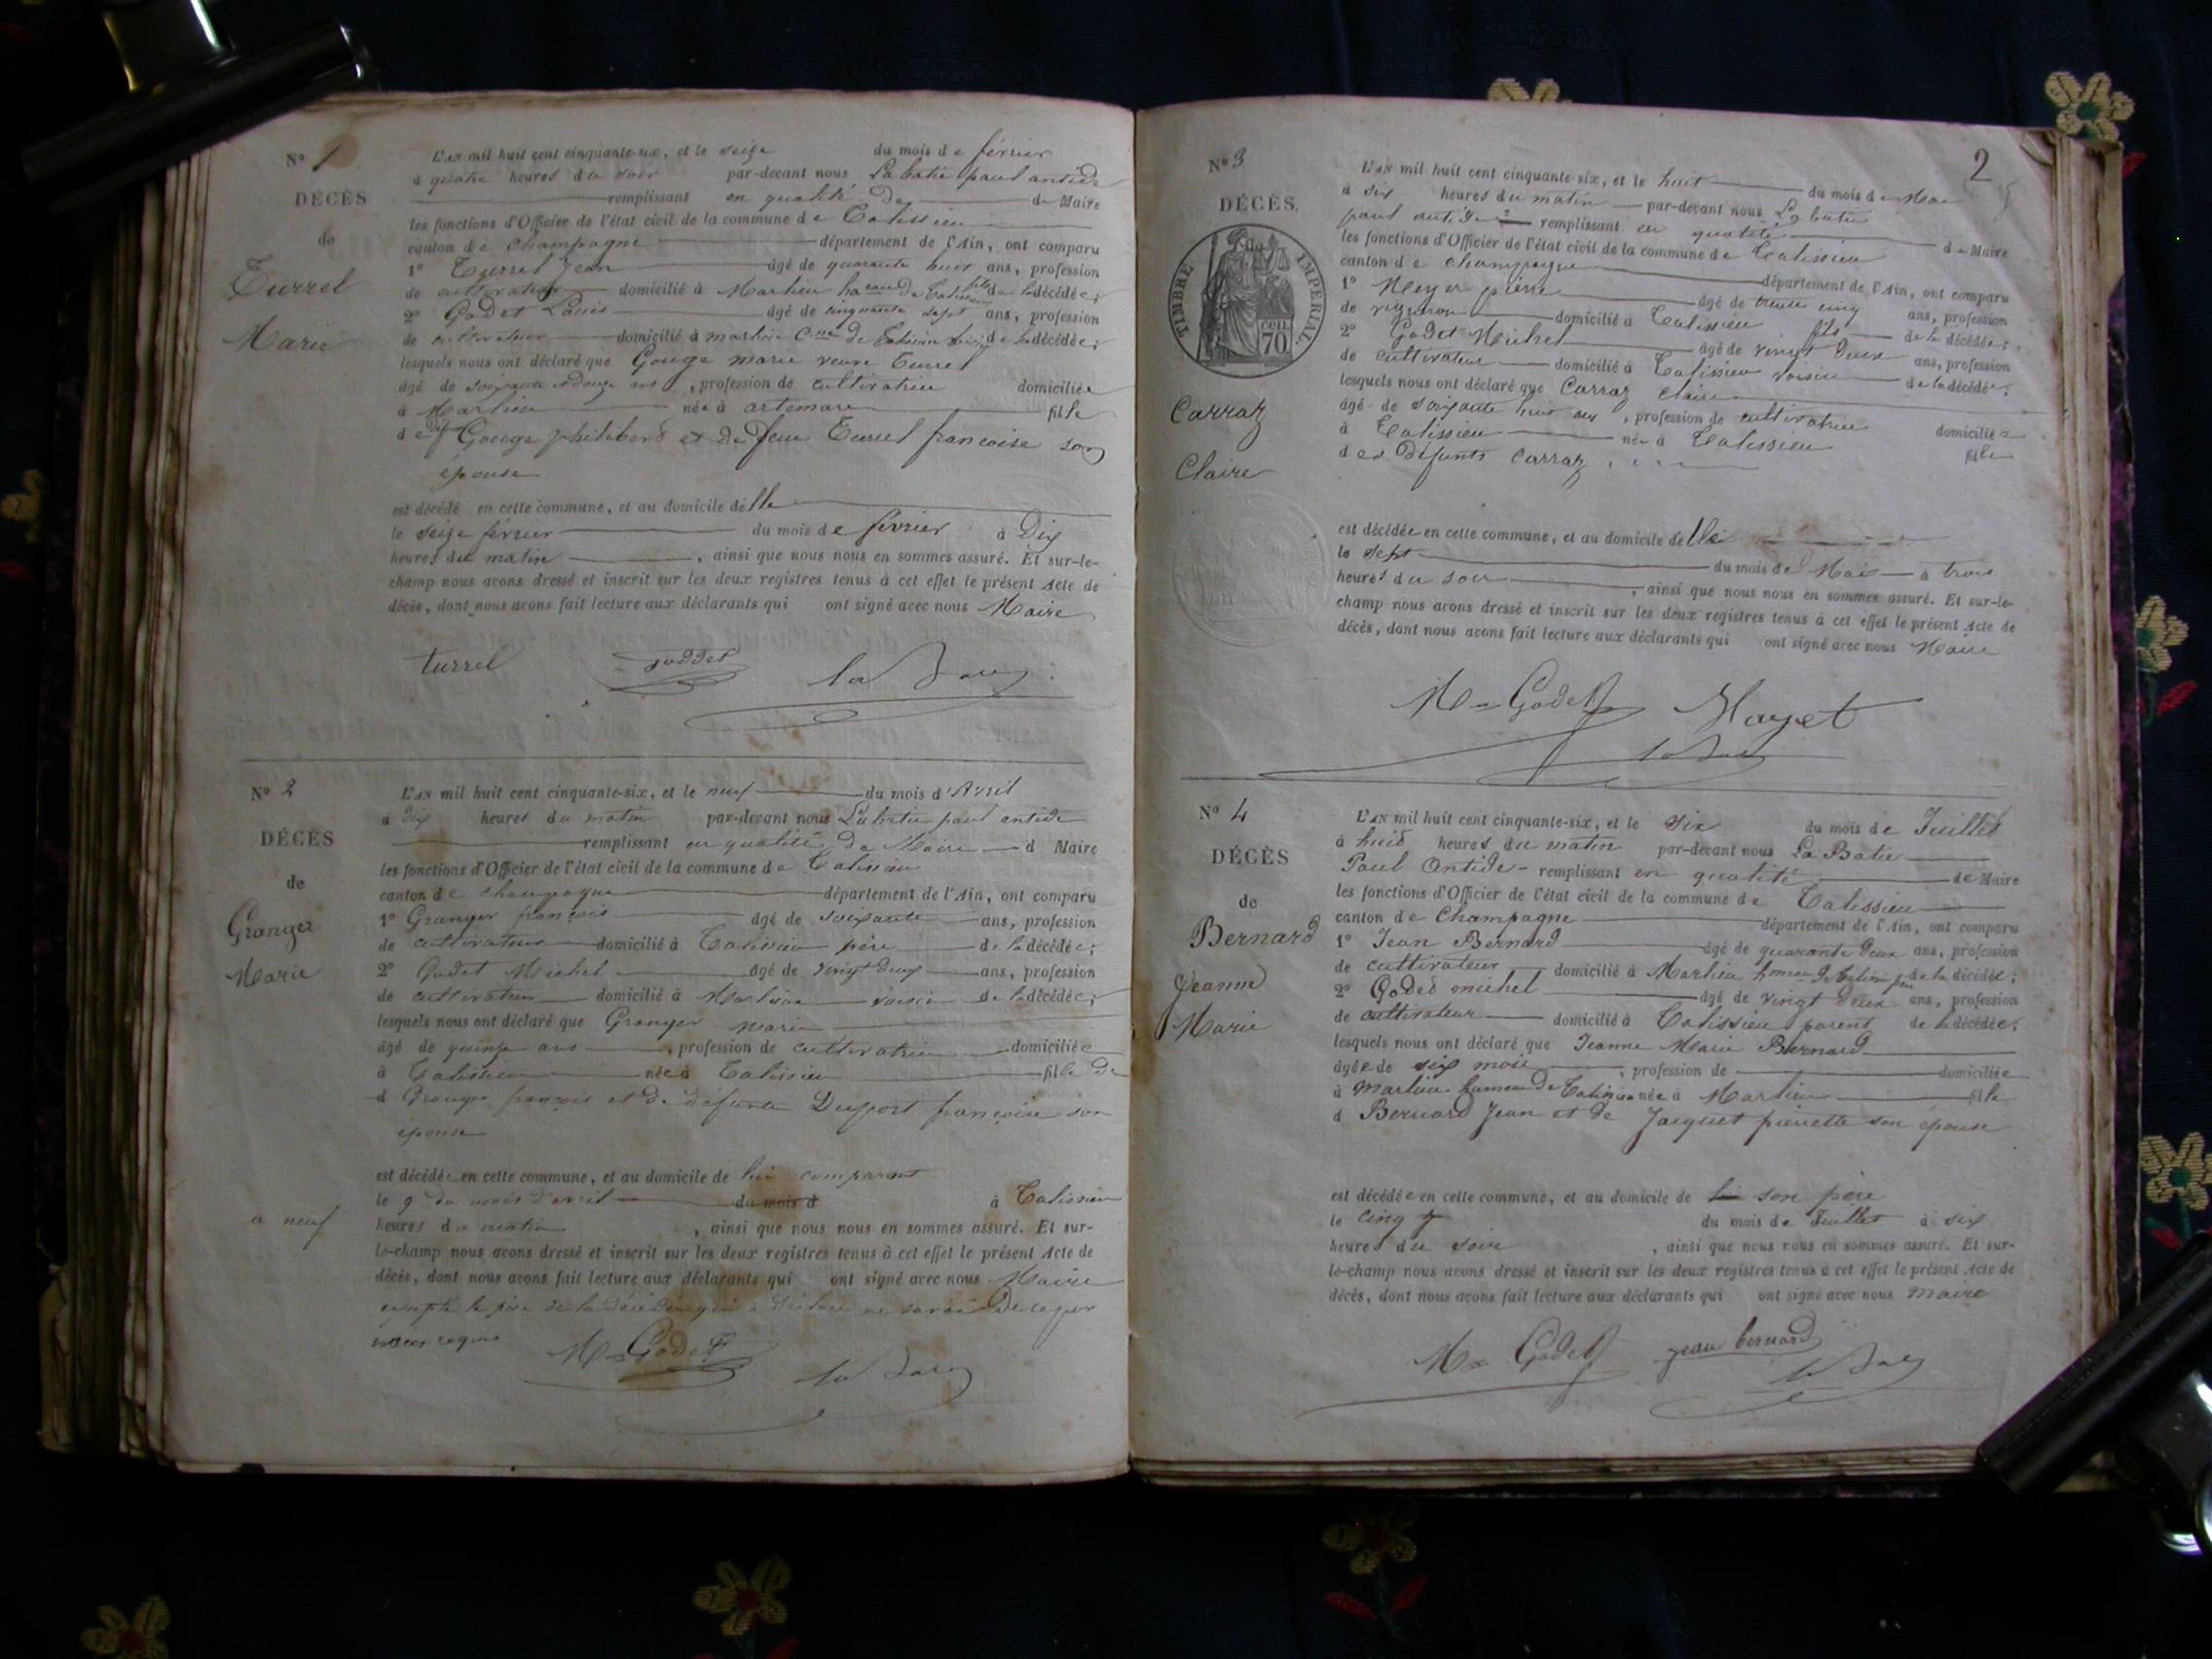 N° 1
DÉCÈS
de
Turrel
Marie
L'AN mil huit cent cinquante-six, et le seize du mois de février
à quatre heures du soir par-devant nous Labatie paul antide
remplissant en qualité de de Maire
les fonctions d'Officier de l'état civil de la commune de Talissieu
canton de champagne département de l'Ain, ont comparu
1° Turrel Jean âgé de quarante huit ans, profession
de cultivateur domicilié à Marlieu de Talissieu fils de la décédée;
2° Godet Louis âgé de cinquante sept ans, profession
de cultivateur domicilié à marlieu de Talissieu de la décédée;
lesquels nous ont déclaré que Gouge marie veuve Turrel
âgé de soixante et douze ans, profession de cultivatrice domiciliée
à Marlieu née à artemare fille
de Gouge philibert et de feue Turrel francoise son
épouse
est décédé en cette commune, et au domicile delle
le seize février du mois de février à Dix
heures du matin, ainsi que nous nous en sommes assuré. Et sur-le-
champ nous avons dressé et inscrit sur les deux registres tenus à cet effet le présent Acte de
décès, dont nous avons fait lecture aux déclarants qui ont signé avec nous Maire
turrel goddet
N° 2
DÉCÈS
de
Granger
Marie
L'AN mil huit cent cinquante-six, et le neuf du mois d'Avril
à dix heures du matin par-devant nous Labatie paul antide
remplissant en qualité de Maire d Maire
les fonctions d'Officier de l'état civil de la commune de Talissieu
canton de champagne département de l'Ain, ont comparu
1° Granger françois âgé de soixante ans, profession
de cultivateur domicilié à Talissieu père de la décédée;
2° Godet Michel âgé de vingt deux ans, profession
de cultivateur domicilié à Marlieu voisin de la décédée;
lesquels nous ont déclaré que Granger marie
âgé de quinze ans, profession de cultivatrice domiciliée
à Talissieu née à Talissieu fille de
d Granger françois et de défunte Duport françoise son
épouse
est décédée en cette commune, et au domicile de lui comparant
le 9 du mois d'avril du mois d à Talissieu
a neuf heures du matin, ainsi que nous nous en sommes assuré. Et sur-
le-champ nous avons dressé et inscrit sur les deux registres tenus à cet effet le présent Acte de
décès, dont nous avons fait lecture aux déclarants qui ont signé avec nous Maire
le père de la décédée qui a déclaré ne savoir De ce
requis
M Godet
2
N° 3
DÉCÈS,
TIMBRE IMPERIAL.
70
Carraz
Claire
L'AN mil huit cent cinquante-six, et le huit du mois de Mai
à six heures du matin par-devant nous Labatie
paul antide remplissant en qualité de Maire
les fonctions d'Officier de l'état civil de la commune de Talissieu
canton de champagne département de l'Ain, ont comparu
1° pierre âgé de trente cinq ans, profession
de vigneron domicilié à Talissieu fils de la décédée;
2° Godet Michel âgé de vingt deux ans, profession
de cultivateur domicilié à Talissieu voisin de la décédée;
lesquels nous ont déclaré que Carraz claire
âgé de soixante huit ans, profession de cultivatrice domiciliée
à Talissieu née à Talissieu fille
des défunts Carraz
est décédée en cette commune, et au domicile delle
le sept du mois de Mai à trois
heures du soir, ainsi que nous nous en sommes assuré. Et sur-le-
champ nous avons dressé et inscrit sur les deux registres tenus à cet effet le présent Acte de
décès, dont nous avons fait lecture aux déclarants qui ont signé avec nous Maire
M Godet
N° 4
DÉCÈS
de
Bernard
Jeanne
Marie
L'AN mil huit cent cinquante-six, et le six du mois de Juillet
à huit heures du matin par-devant nous La Batie
Paul Antide remplissant en qualité de Maire
les fonctions d'Officier de l'état civil de la commune de Talissieu
canton de Champagne département de l'Ain, ont comparu
1° Jean Bernard âgé de quarante deux ans, profession
de cultivateur domicilié à Marlieu de Talissieu de la décédée;
2° Godet michel âgé de vingt deux ans, profession
de cultivateur domicilié à Talissieu parent de la décédée;
lesquels nous ont déclaré que Jeanne Marie Bernard
âgée de six mois, profession de domiciliée
à Marlieu hameau de Talissieu née à Marlieu fille
d Bernard Jean et de Jacquet pierrette son épouse
est décédée en cette commune, et au domicile de son père
le cinq du mois de Juillet à six
heures du soir, ainsi que nous nous en sommes assuré. Et sur-
le-champ nous avons dressé et inscrit sur les deux registres tenus à cet effet le présent Acte de
décès, dont nous avons fait lecture aux déclarants qui ont signé avec nous maire
M Godet jean bernard